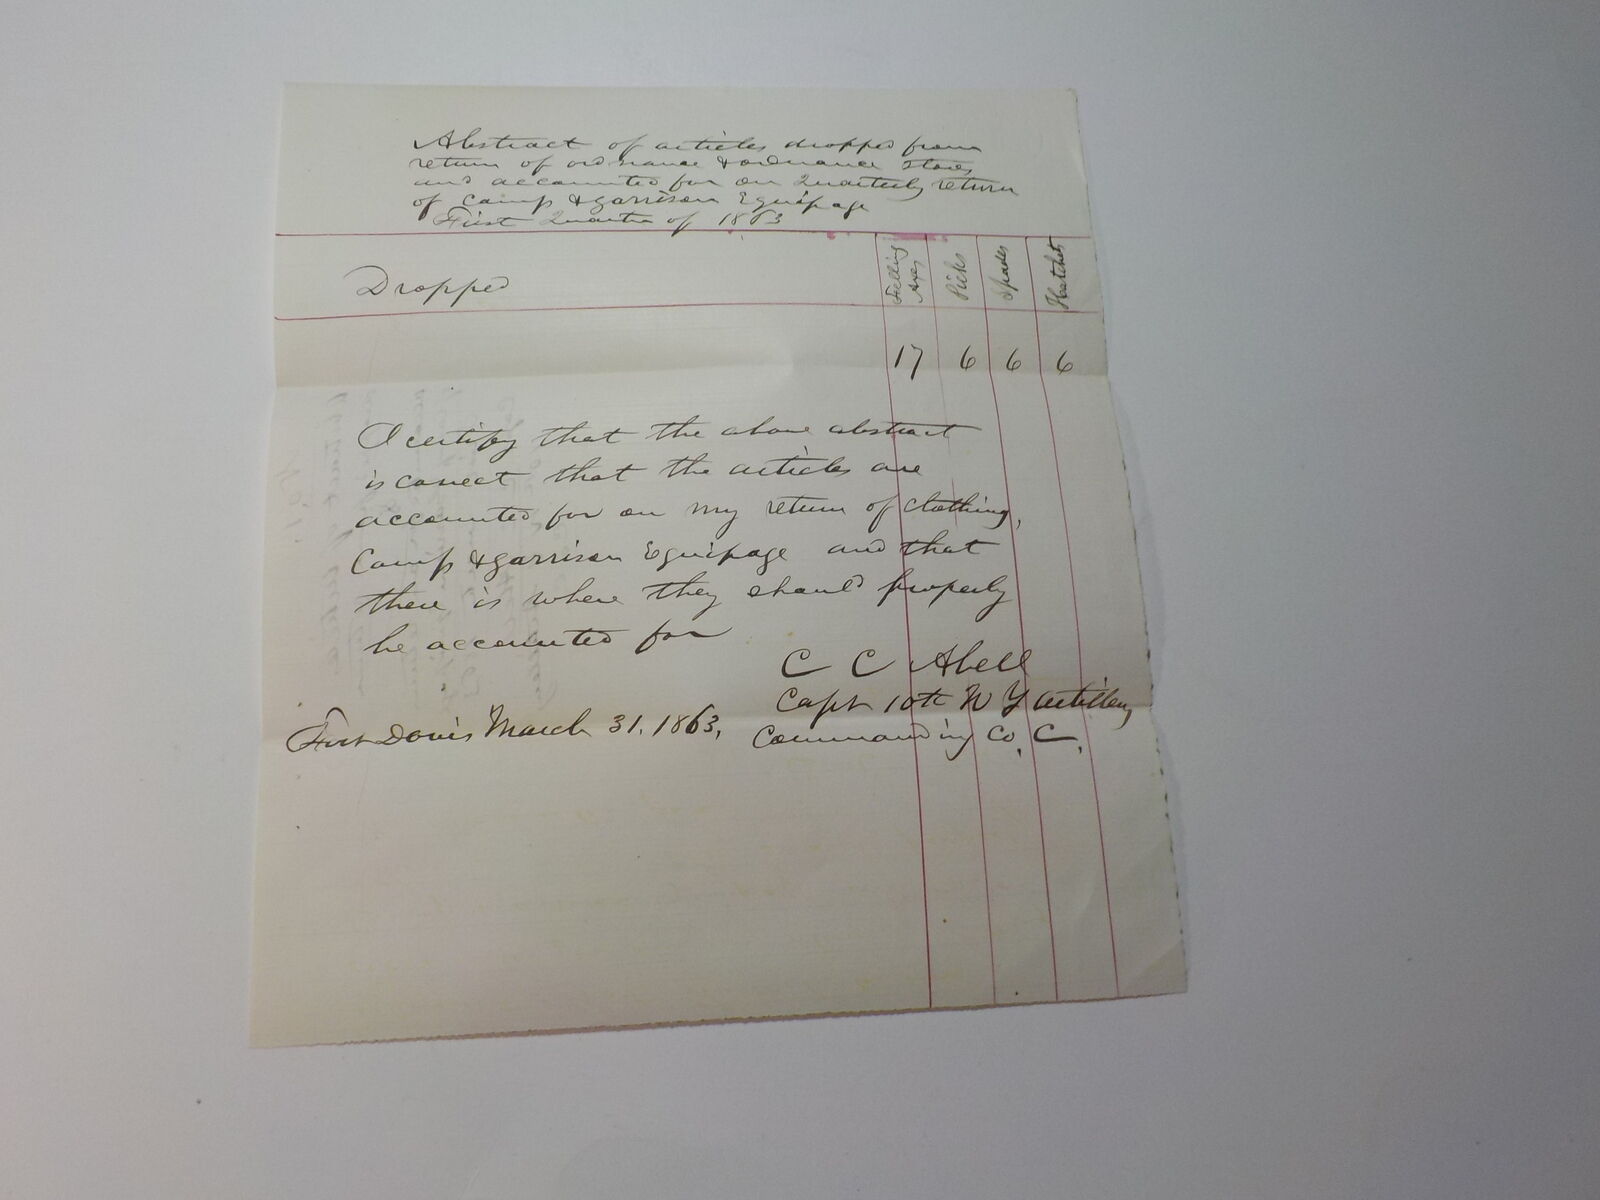 Abstract of articles dropped from
return of ordnance & ordnance stores
and accounted for on Quarterly return
of Camp & garrison Equipage
First Quarter of 1863
Dropped
Felling Axes
Picks
Spades
Hatchets
17 6 6 6
I certify that the above abstract
is correct that the articles are
accounted for on my return of clothing,
Camp & garrison Equipage and that
there is where they should properly
be accounted for
C C Abell
Capt 10th N Y Artillery
Commanding Co, C,
Fort Davis March 31, 1863,